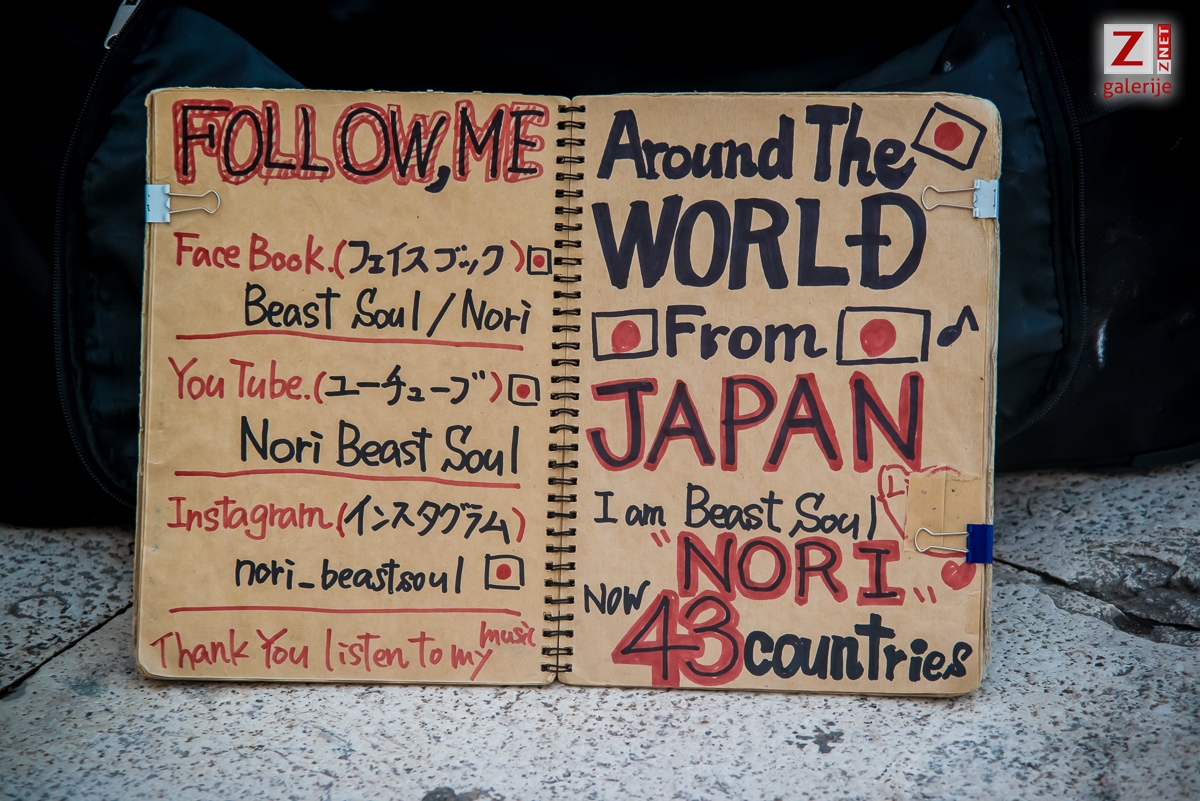 FOLLOW,ME
Face Book.(フェイスブック)
Beast Soul/Nori
You Tube.(ユーチューブ)
Nori Beast Soul
Instagram(インスタグラム)
nori_beastsoul
Thank You listen to my music
Around The
WORLD
From
JAPAN
I am Beast Soul
"NORI"
NOW 43 countries
Z ZNET
galerije